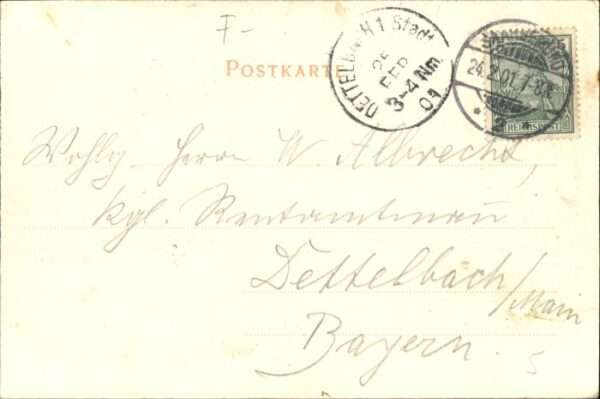 F-
POSTKARTE
DETTELBACH 1 Stadt
25
FEB
3-4 Nm.
01
24.2.01.7-8N.
* 2 *
REICHSPOST
Wohlg. Herrn W. Albrecht,
kgl. Rentamtmann
Dettelbach/Main
Bayern.
5